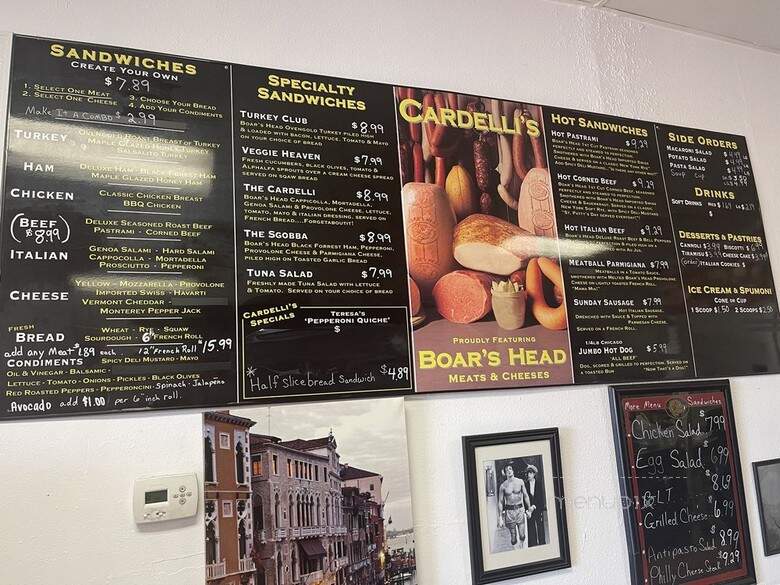 SANDWICHES
CREATE YOUR OWN
$7.89
1. SELECT ONE MEAT
2. SELECT ONE CHEESE
3. CHOOSE YOUR BREAD
4. ADD YOUR CONDIMENTS
Make It A Combo $2.99
TURKEY
OVENGOLD ROAST BREAST OF TURKEY
MAPLE GLAZED HONEY TURKEY
SALSALITO TURKEY
HAM
DELUXE HAM - BLACK FOREST HAM
MAPLE GLAZED HONEY HAM
CHICKEN
CLASSIC CHICKEN BREAST
BBQ CHICKEN
(BEEF)
$8.99
DELUXE SEASONED ROAST BEEF
PASTRAMI - CORNED BEEF
ITALIAN
GENOA SALAMI - HARD SALAMI
CAPPOCOLLA - MORTADELLA
PROSCIUTTO - PEPPERONI
CHEESE
YELLOW - MOZZARELLA - PROVOLONE
IMPORTED SWISS - HAVARTI
VERMONT CHEDDAR -
MONTEREY PEPPER JACK
FRESH
BREAD
WHEAT - RYE - SQUAW
SOURDOUGH - 6" FRENCH ROLL
add any Meat $1.89 each. 12" French Roll $15.99
CONDIMENTS
SPICY DELI MUSTARD - MAYO
OIL & VINEGAR - BALSAMIC -
LETTUCE - TOMATO - ONIONS - PICKLES - BLACK OLIVES
RED ROASTED PEPPERS - PEPPERONCINI - Spinach - Jalapeno
Avocado add $1.00 per 6" inch roll.
SPECIALTY
SANDWICHES
TURKEY CLUB $8.99
BOAR'S HEAD OVENGOLD TURKEY PILED HIGH
& LOADED WITH BACON, LETTUCE, TOMATO & MAYO
ON YOUR CHOICE OF BREAD
VEGGIE HEAVEN $7.99
FRESH CUCUMBERS, BLACK OLIVES, TOMATO &
ALPHALFA SPROUTS OVER A CREAM CHEESE SPREAD
SERVED ON SQAW BREAD
THE CARDELLI $8.99
BOAR'S HEAD CAPPICOLLA, MORTADELLA,
GENOA SALAMI & PROVOLONE CHEESE, LETTUCE,
TOMATO, MAYO & ITALIAN DRESSING, SERVED ON
FRENCH BREAD.... FORGETABOUTIT!
THE SGOBBA $8.99
BOAR'S HEAD BLACK FORREST HAM, PEPPERONI,
PROVOLONE CHEESE & PARMIGIANA CHEESE,
PILED HIGH ON TOASTED GARLIC BREAD
TUNA SALAD $7.99
FRESHLY MADE TUNA SALAD WITH LETTUCE
& TOMATO. SERVED ON YOUR CHOICE OF BREAD
CARDELLI'S
SPECIALS
TERESA'S
"PEPPERONI QUICHE"
$
*Half slice bread Sandwich $4.89
CARDELLI'S
PROUDLY FEATURING
BOAR'S HEAD
MEATS & CHEESES
HOT SANDWICHES
HOT PASTRAMI $9.29
BOAR'S HEAD 1ST CUT PASTRAMI
HOT CORNED BEEF $9.29
BOAR'S HEAD 1ST CUT CORNED BEEF
HOT ITALIAN BEEF $9.29
MEATBALL PARMIGIANA $7.99
MEATBALLS IN A TOMATO SAUCE,
"MAMA MIA!"
SUNDAY SAUSAGE $7.99
HOT ITALIAN SAUSAGE,
DRENCHED WITH SAUCE & TOPPED WITH
PARMESAN CHEESE.
SERVED ON A FRENCH ROLL.
1/4LB CHICAGO
JUMBO HOT DOG $5.99
"ALL BEEF"
DOG, SCORED & GRILLED TO PERFECTION. SERVED ON
A TOASTED BUN "NOW THAT'S A DOG!"
SIDE ORDERS
MACARONI SALAD
POTATO SALAD
PASTA SALAD
Soup
DRINKS
SOFT DRINKS
DESSERTS & PASTRIES
CANNOLI $3.99 BISCOTTI
TIRAMISU CHEESE CAKE
ITALIAN COOKIES $
ICE CREAM & SPUMONI
CONE OR CUP
1 SCOOP $1.50 2 SCOOPS $2.50
More Menu Sandwiches
Chicken Salad $7.99
Egg Salad 6.99
BLT 8.69
Grilled Cheese 6.99
Antipasto Salad 8.99
Philly Cheese Steak 9.29